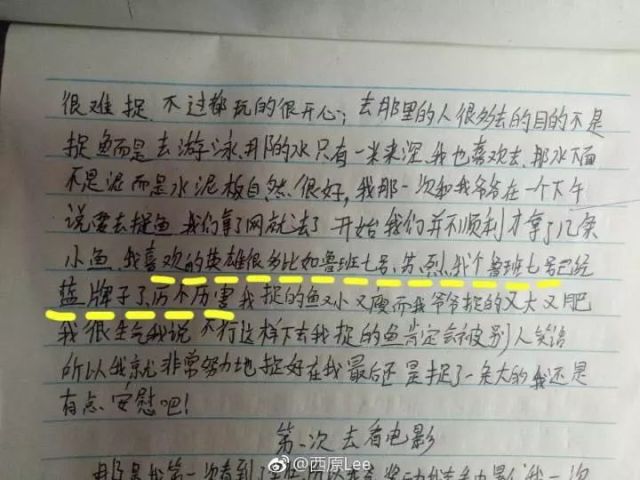 很难捉，不过都玩的很开心；去那里的人很多去的目的不是
捉鱼而是去游泳，那的水只有一米来深，我也喜欢去，那水下面
不是泥而是水泥板自然很好，我那一次和我爷爷在一个下午
说要去捉鱼，我们拿了网就去了 开始我们并不顺利才拿了几条
小鱼，我喜欢的英雄很多比如鲁班七号，苏烈，我个鲁班七号已经
蓝牌子了，厉不厉害 我捉的鱼又小又瘦而我爷爷捉的又大又肥
我很生气我说 不行这样下去我捉的鱼肯定会被别人笑话
所以我就非常努力地捉好在我最后还是捉了一条大的我还是
有点安慰吧！
第一次去看电影
我第一次看到了
@西原Lee